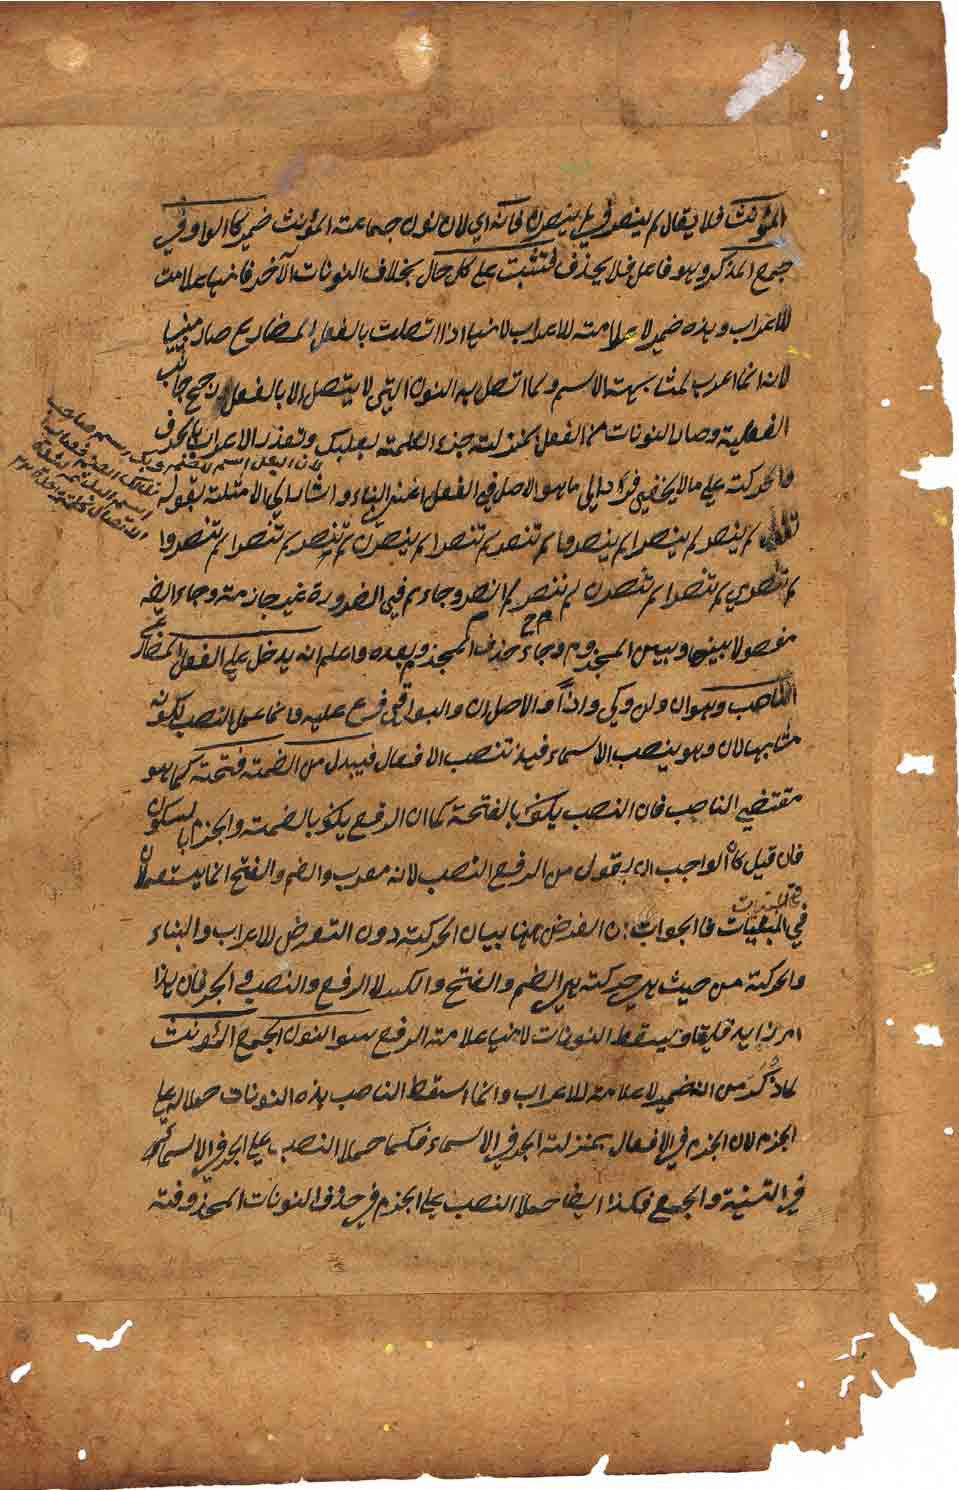 المؤنث فلا يقال لم ينصر في لم ينصرن فانه اي لان نون جماعة المؤنث ضمير كالواو في
جمع المذكر وهو فاعل فلا يحذف فتثبت على كل حال بخلاف النونات الآخر فانها علامت
للاعراب وهذه ضمير لا علامة للاعراب لانها اذا اتصلت بالفعل المضارع صار مبنيا
لانه انما اعرب لمشابهة الاسم ولما اتصل به النون التي لا يتصل الا بالفعل رجح جانب
الفعلية وصار النونات من الفعل بمنزلة جزء الكلمة بعلبك وتعذر الاعراب بالحرف
والحركة على ما لا يخفى فرد الى ما هو الاصل في الفعل اعني البناء واشار الى الامثلة بقوله
لم ينصر لم ينصرا لم ينصروا لم تنصر لم تنصرا لم ينصرن لم تنصر لم تنصرا لم تنصروا
لم تنصري لم تنصرا لم تنصرن لم ننصر لم انصر وجاء لم في الضرورة غير جازمة وجاء ايضا
مفصولا بينها وبين المجزوم وجاء حذف المجزوم بعده واعلم انه يدخل على الفعل المضارع
الناصب وهو ان ولن وكي واذا والاصل ان والبواقي فرع عليه وانما عمل النصب لكونه
مشابها لان وهو ينصب الاسماء فهذه تنصب الافعال فيبدل من الضمة فتحة كما هو
مقتضى الناصب فان النصب يكون بالفتحة كما ان الرفع يكون بالضمة والجزم بالسكون
فان قيل كان الواجب ان يقول من الرفع النصب لانه معرب والضم والفتح انما يستعملان
في المبنيات فالجواب ان الغرض ههنا بيان الحركة دون التعرض للاعراب والبناء
والحركة من حيث هي حركة هي الضم والفتح والكسر لا الرفع والنصب والجر فان هذا
امر زايد فليقاو يسقط النونات لانها علامة الرفع سوا النون الجمع المؤنث
لما ذكر من انه ضمير لا علامة للاعراب وانما اسقط الناصب هذه النونات حملا له على
الجزم لان الجزم في الافعال بمنزلة الجر في الاسماء فكما حمل النصب على الجر في الاسماء
في التثنية والجمع فكذا ايضا حمل النصب على الجزم في حذف النونات المحذوفة